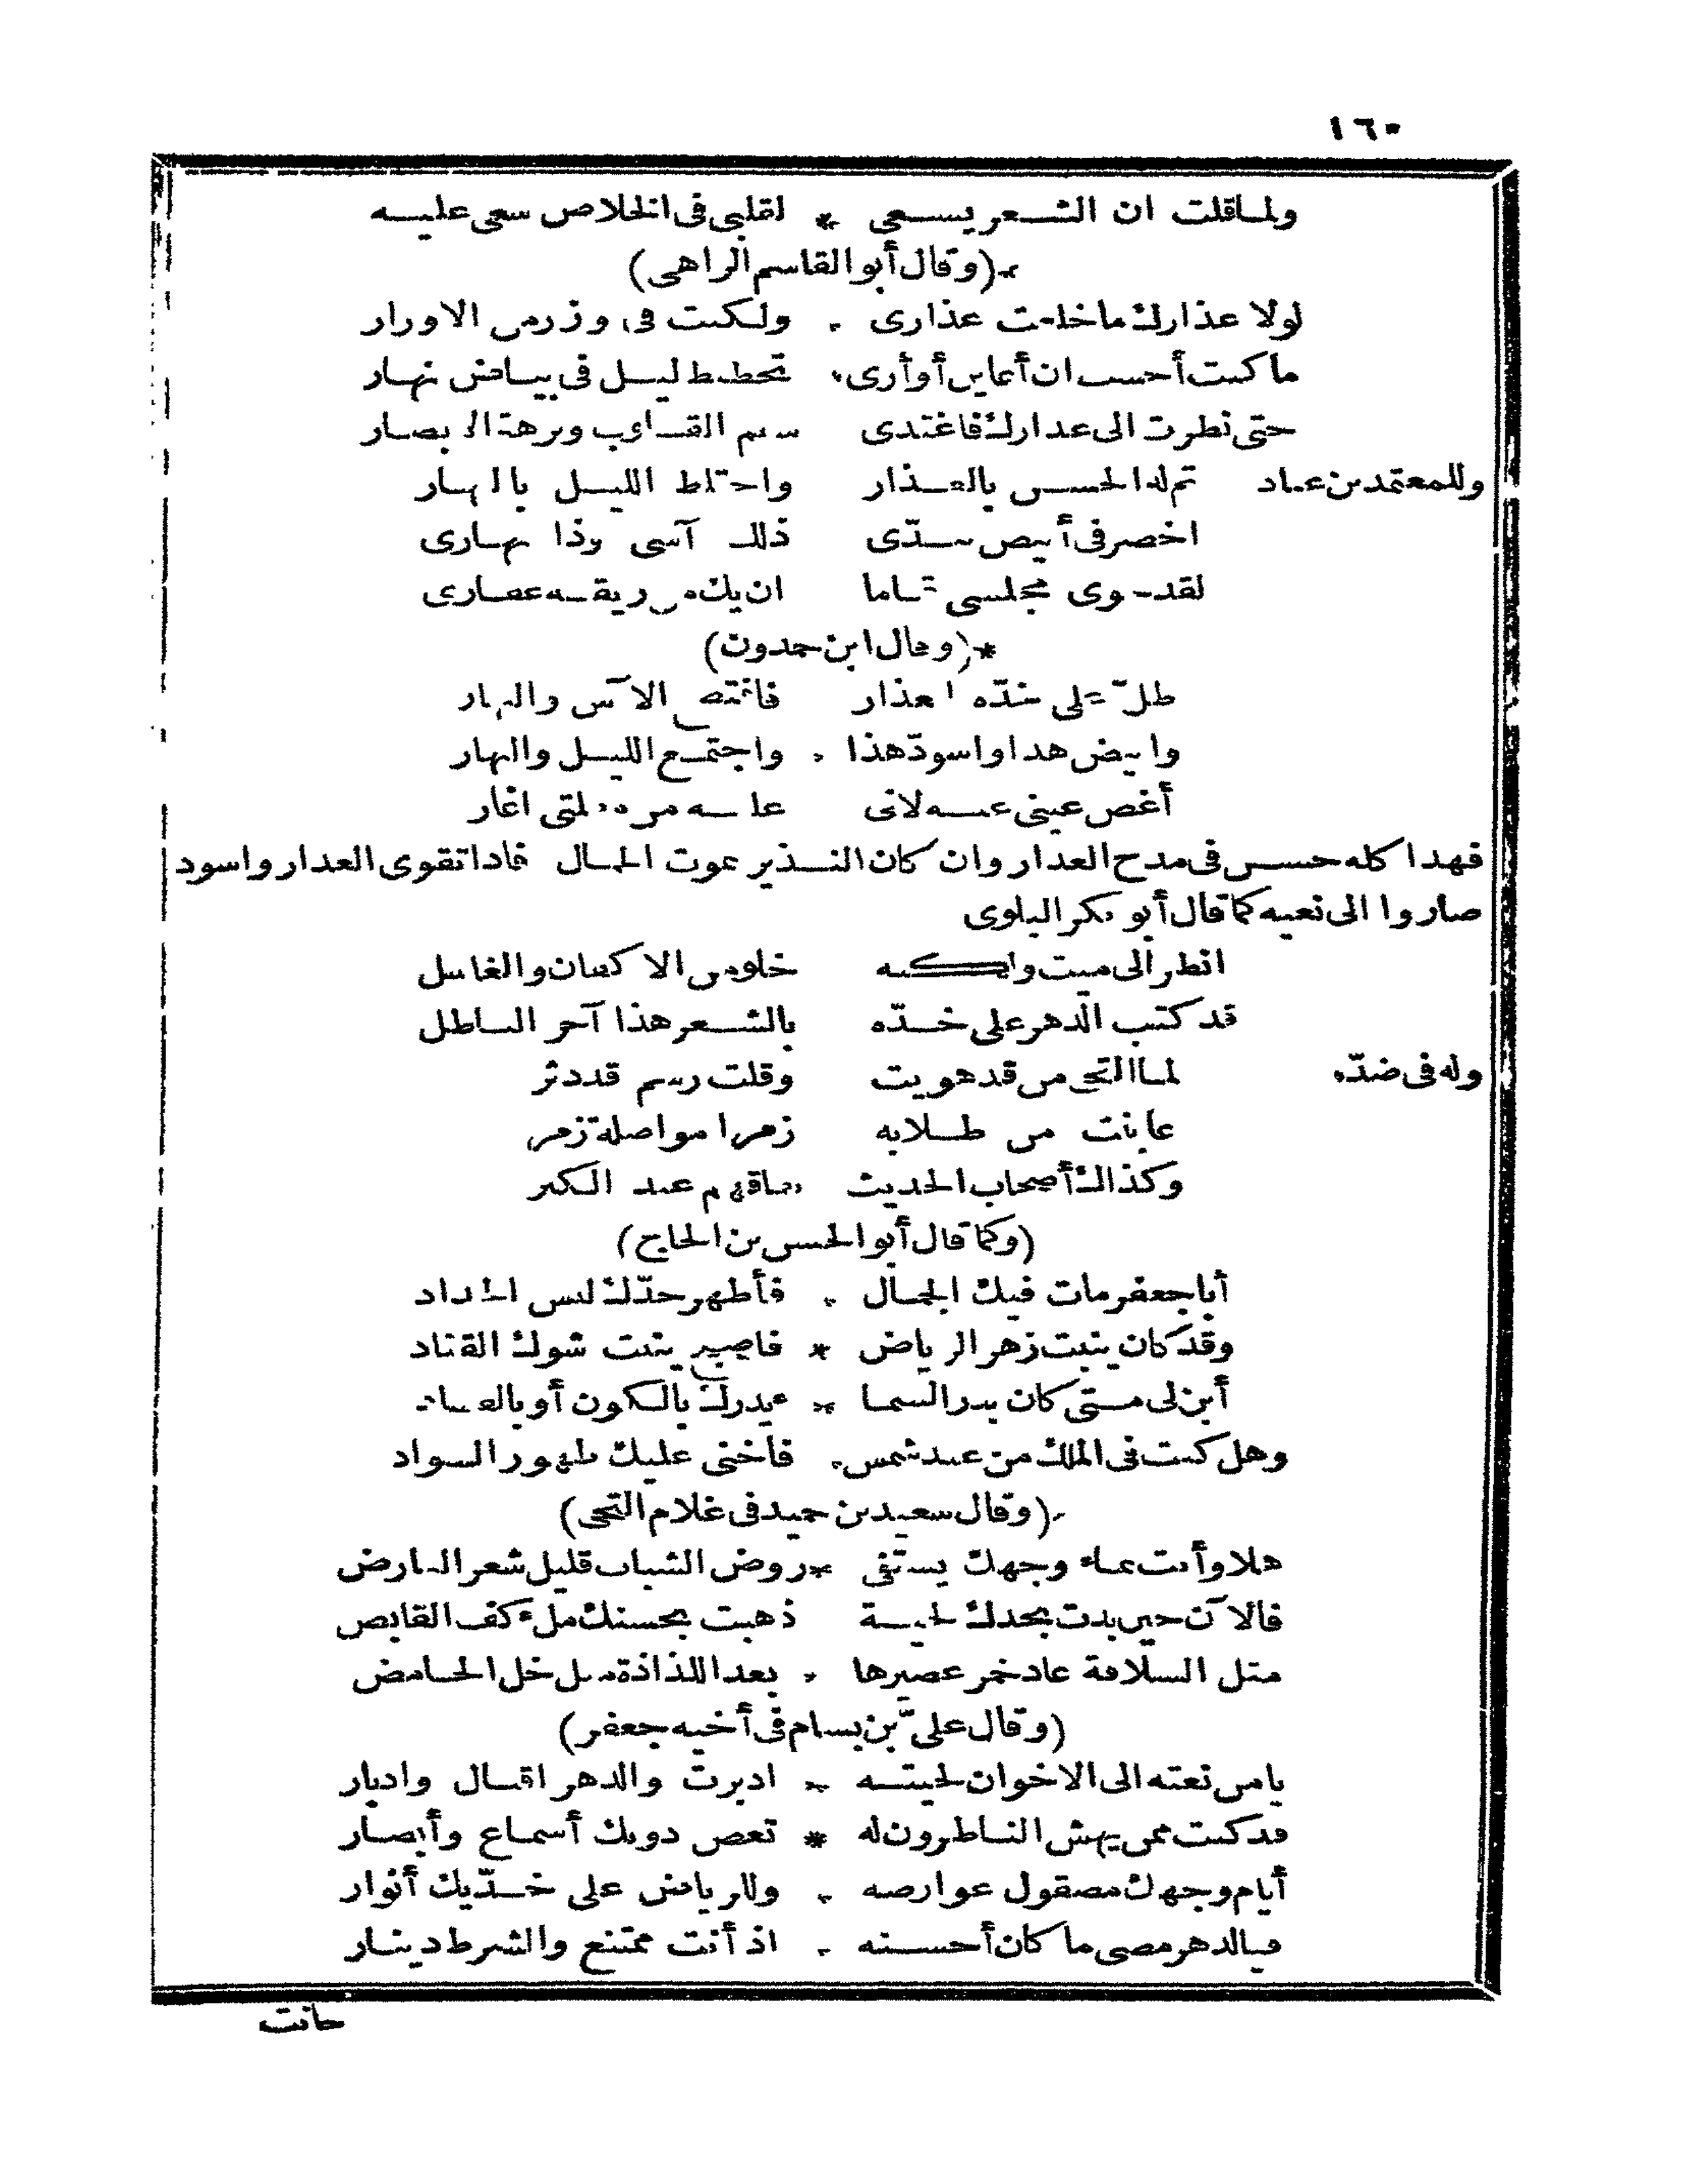 ١٦٠
ولما قلت ان الشعر يسعى * لقلبي في الخلاص سعى عليه
*(وقال أبو القاسم الزاهى)
لولا عذارك ما خلعت عذارى . ولكنت فى وزر من الاوزار
ما كنت أحسب ان أعاين أوأرى . تخطيط ليل فى بياض نهار
حتى نظرت الى عذارك فاغتدى القلوب ونزهة الابصار
وللمعتمد بن عباد تم له الحسن بالعذار واختلط الليل بالنهار
اخضر فى أبيض تبدّى ذلك آسى وذا بهارى
لقد حوى مجلسى تماما ان يك من ريقه عقارى
*(وقال ابن حمدون)
طلّ على خدّه العذار فافتضح الآس والبهار
وابيض هذا واسودّ هذا . واجتمع الليل والنهار
أغض عينى عنه لانى عليه من مقلتى اغار
فهذا كله حسن فى مدح العذار وان كان النذير بموت الجمال فاذا تقوى العذار واسود
صاروا الى نعيه كما قال أبو بكر البلوى
انظر الى ميت ولكنه خلو من الاكفان والغاسل
قد كتب الدهر على خدّه بالشعر هذا آخر الباطل
وله فى ضدّه لما التحى من قد هويت وقلت رسم قد دثر
عاينت من طلابه زمرا مواصلة زمر
وكذلك أصحاب الحديث نفاقهم عند الكبر
(وكما قال أبو الحسن بن الحاج)
أبا جعفر مات فيك الجمال . فأظهر خدّك لبس الحداد
وقد كان ينبت زهر الرياض * فاصبح ينبت شوك القتاد
أبن لى متى كان بدر السما * يدرك بالكون أو بالفساد
وهل كنت فى الملك من عبد شمس . فأخنى عليك ظهور السواد
(وقال سعيد بن حميد فى غلام التحى)
هلا وأنت بماء وجهك يستقى * روض الشباب قليل شعر العارض
فالآن حين بدت بخدك لحية ذهبت بحسنك ملء كف القابض
مثل السلافة عاد خمر عصيرها . بعد اللذاذة مثل خل الحامض
(وقال علىّ بن بسام فى أخيه جعفر)
يا من نعته الى الاخوان لحيته * ادبرت والدهر اقبال وادبار
قد كنت ممن يهش الناظرون له * تغص دونك أسماع وأبصار
أيام وجهك مصقول عوارضه . وللرياض على خدّيك أنوار
فيالدهر مضى ما كان أحسنه . اذ أنت ممتنع والشرط دينار
حانت